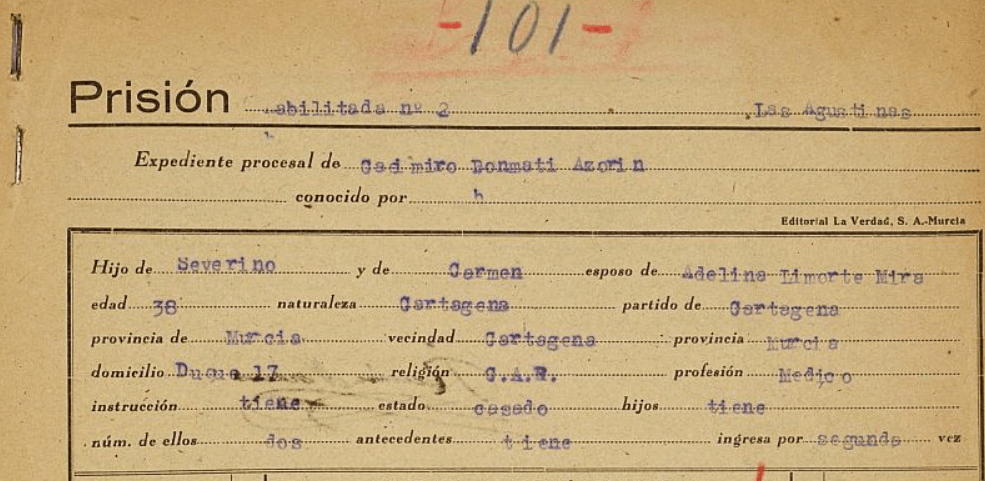 -101-
Prisión abilitada nº 2 Las Agustinas
h
Expediente procesal de Casimiro Bonmati Azorin
conocido por h
Editorial La Verdad, S. A.-Murcia
Hijo de Severino y de Carmen esposo de Adelina Limorte Mira
edad 38 naturaleza Cartagena partido de Cartagena
provincia de Murcia vecindad Cartagena provincia Murcia
domicilio Duque 17 religión C.A.R. profesión Medico
instrucción tiene estado casado hijos tiene
núm. de ellos dos antecedentes tiene ingresa por segunda vez